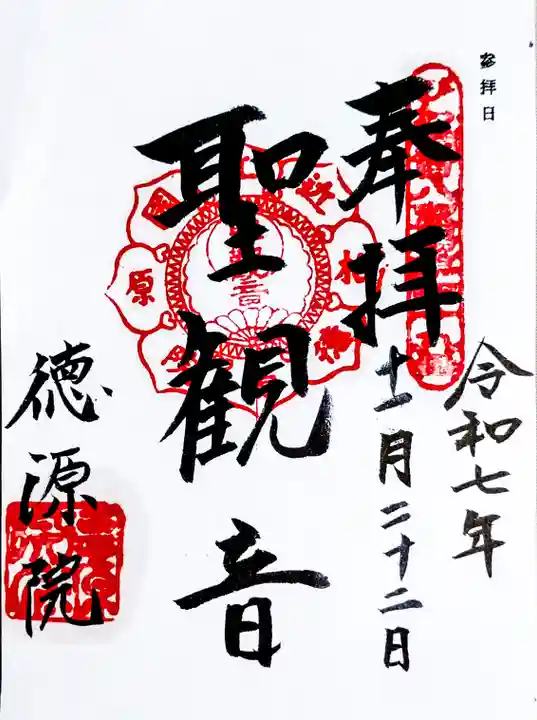 参拝日
奉拝
令和七年
十一月二十二日
聖観音
徳源院